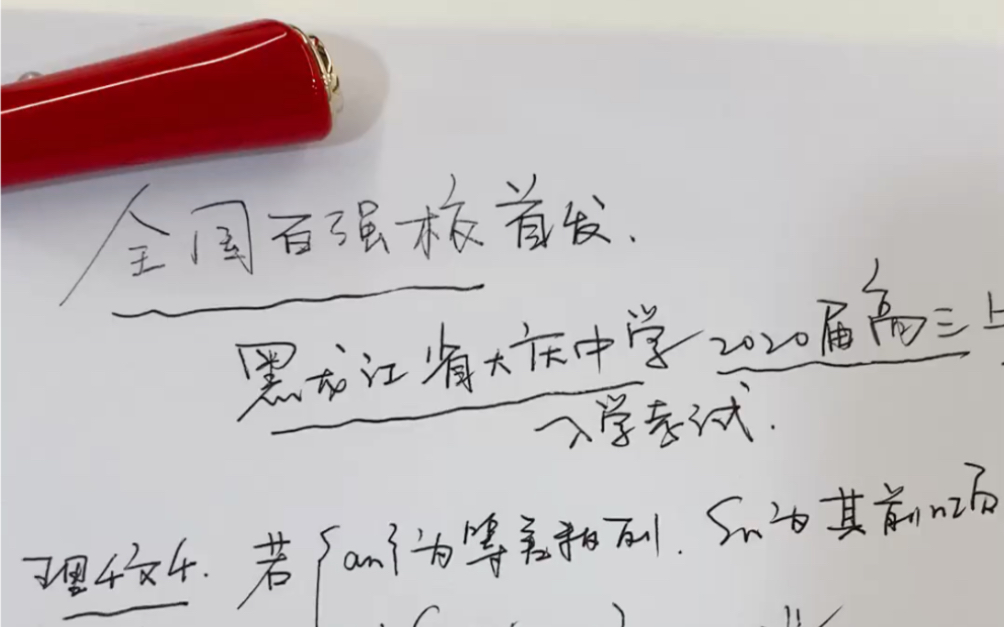 全国百强校首发.
黑龙江省大庆中学2020届高三上
入学考试.
理4文4. 若{an}为等差数列. Sn为其前n项